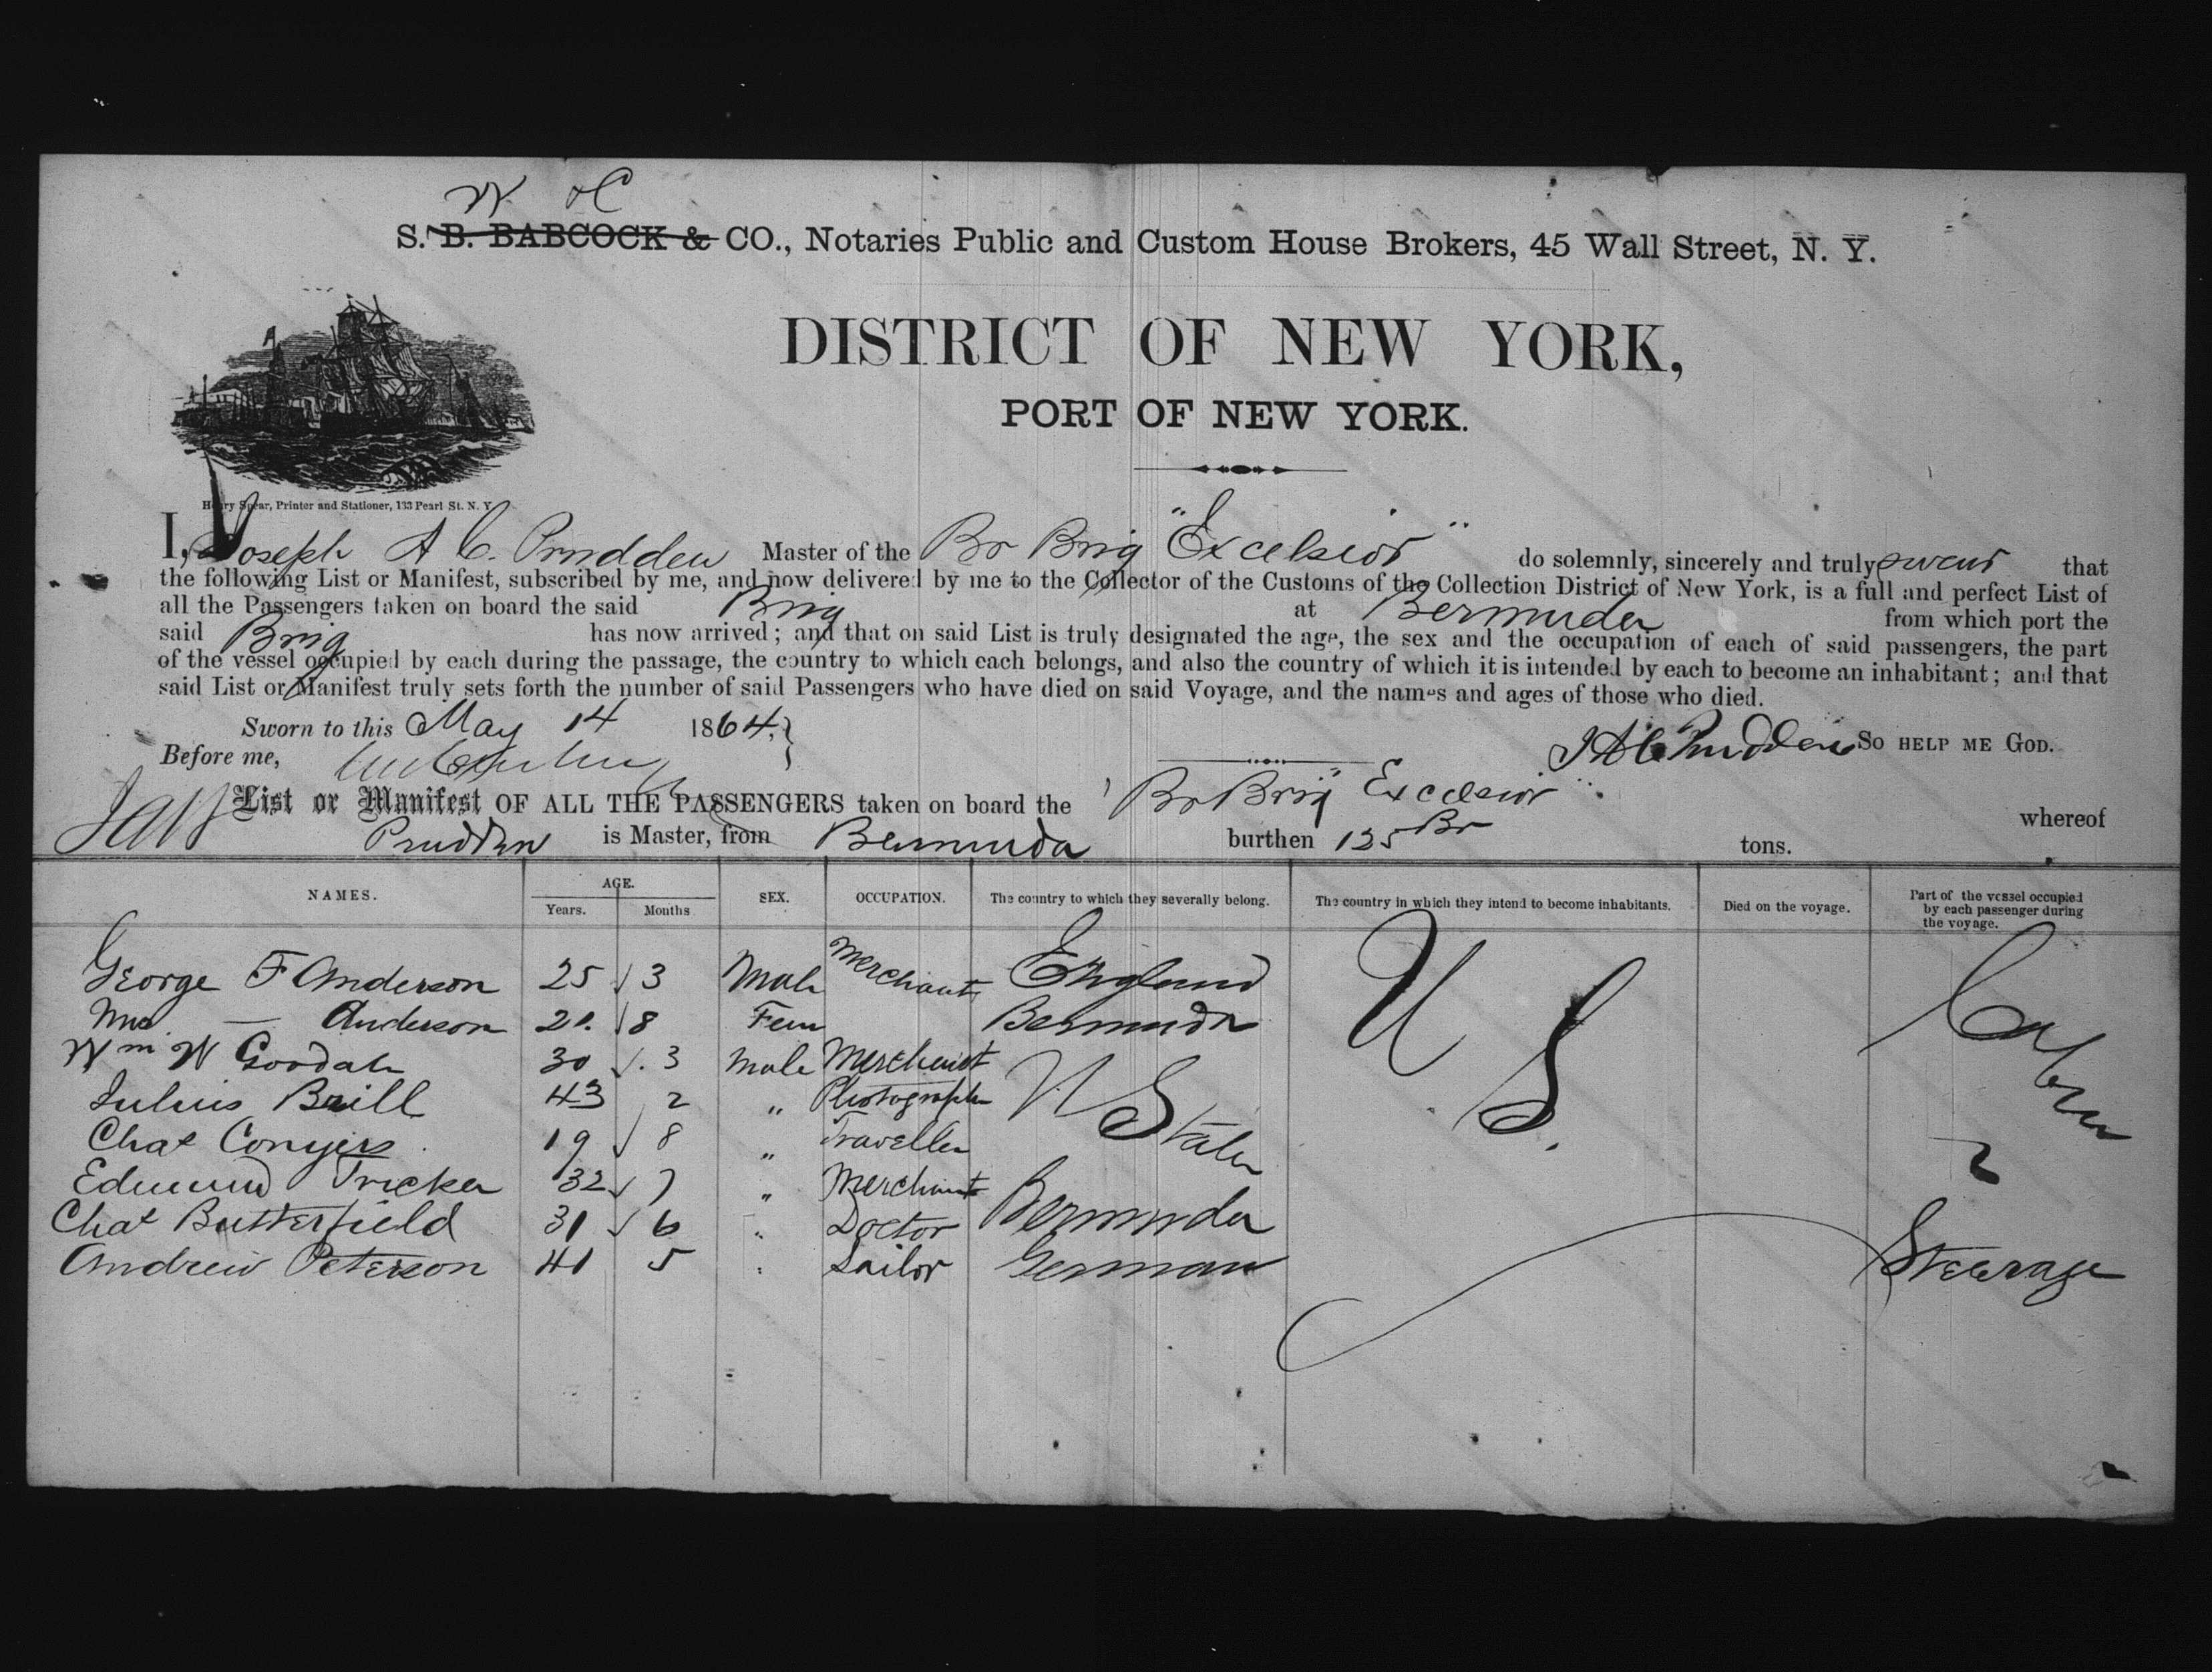 W &C
S. B. BABCOCK & CO., Notaries Public and Custom House Brokers, 45 Wall Street, N. Y.
DISTRICT OF NEW YORK,
PORT OF NEW YORK.
Henry Spear, Printer and Stationer, 133 Pearl St. N. Y.
I, Joseph A C. Prudden Master of the Br Brig "Excelsior" do solemnly, sincerely and truly swear that
the following List or Manifest, subscribed by me, and now delivered by me to the Collector of the Customs of the Collection District of New York, is a full and perfect List of
all the Passengers taken on board the said Brig at Bermuda from which port the
said Brig has now arrived; and that on said List is truly designated the age, the sex and the occupation of each of said passengers, the part
of the vessel occupied by each during the passage, the country to which each belongs, and also the country of which it is intended by each to become an inhabitant; and that
said List or Manifest truly sets forth the number of said Passengers who have died on said Voyage, and the names and ages of those who died.
Sworn to this May 14 1864. J A C Prudden SO HELP ME GOD.
Before me,
List or Manifest OF ALL THE PASSENGERS taken on board the Br Brig "Excelsior" whereof
Prudden is Master, from Bermuda burthen 125 Br tons.
NAMES. AGE. Years. Months SEX. OCCUPATION. The country to which they severally belong. The country in which they intend to become inhabitants. Died on the voyage. Part of the vessel occupied by each passenger during the voyage.
George F Anderson 25 3 Male Merchant England U S. Cabin
Mrs — Anderson 21. 8 Fem Bermuda
Wm W Goodah 30 . 3 Male Merchant U States
Julius Brill 43 2 " Photograph
Chas Conyers 19 8 " Traveller
Edmund Tricker 32 7 " Merchant
Chas Butterfield 31 6 " Doctor Bermuda
Andrew Peterson 41 5 " Sailor German Steerage